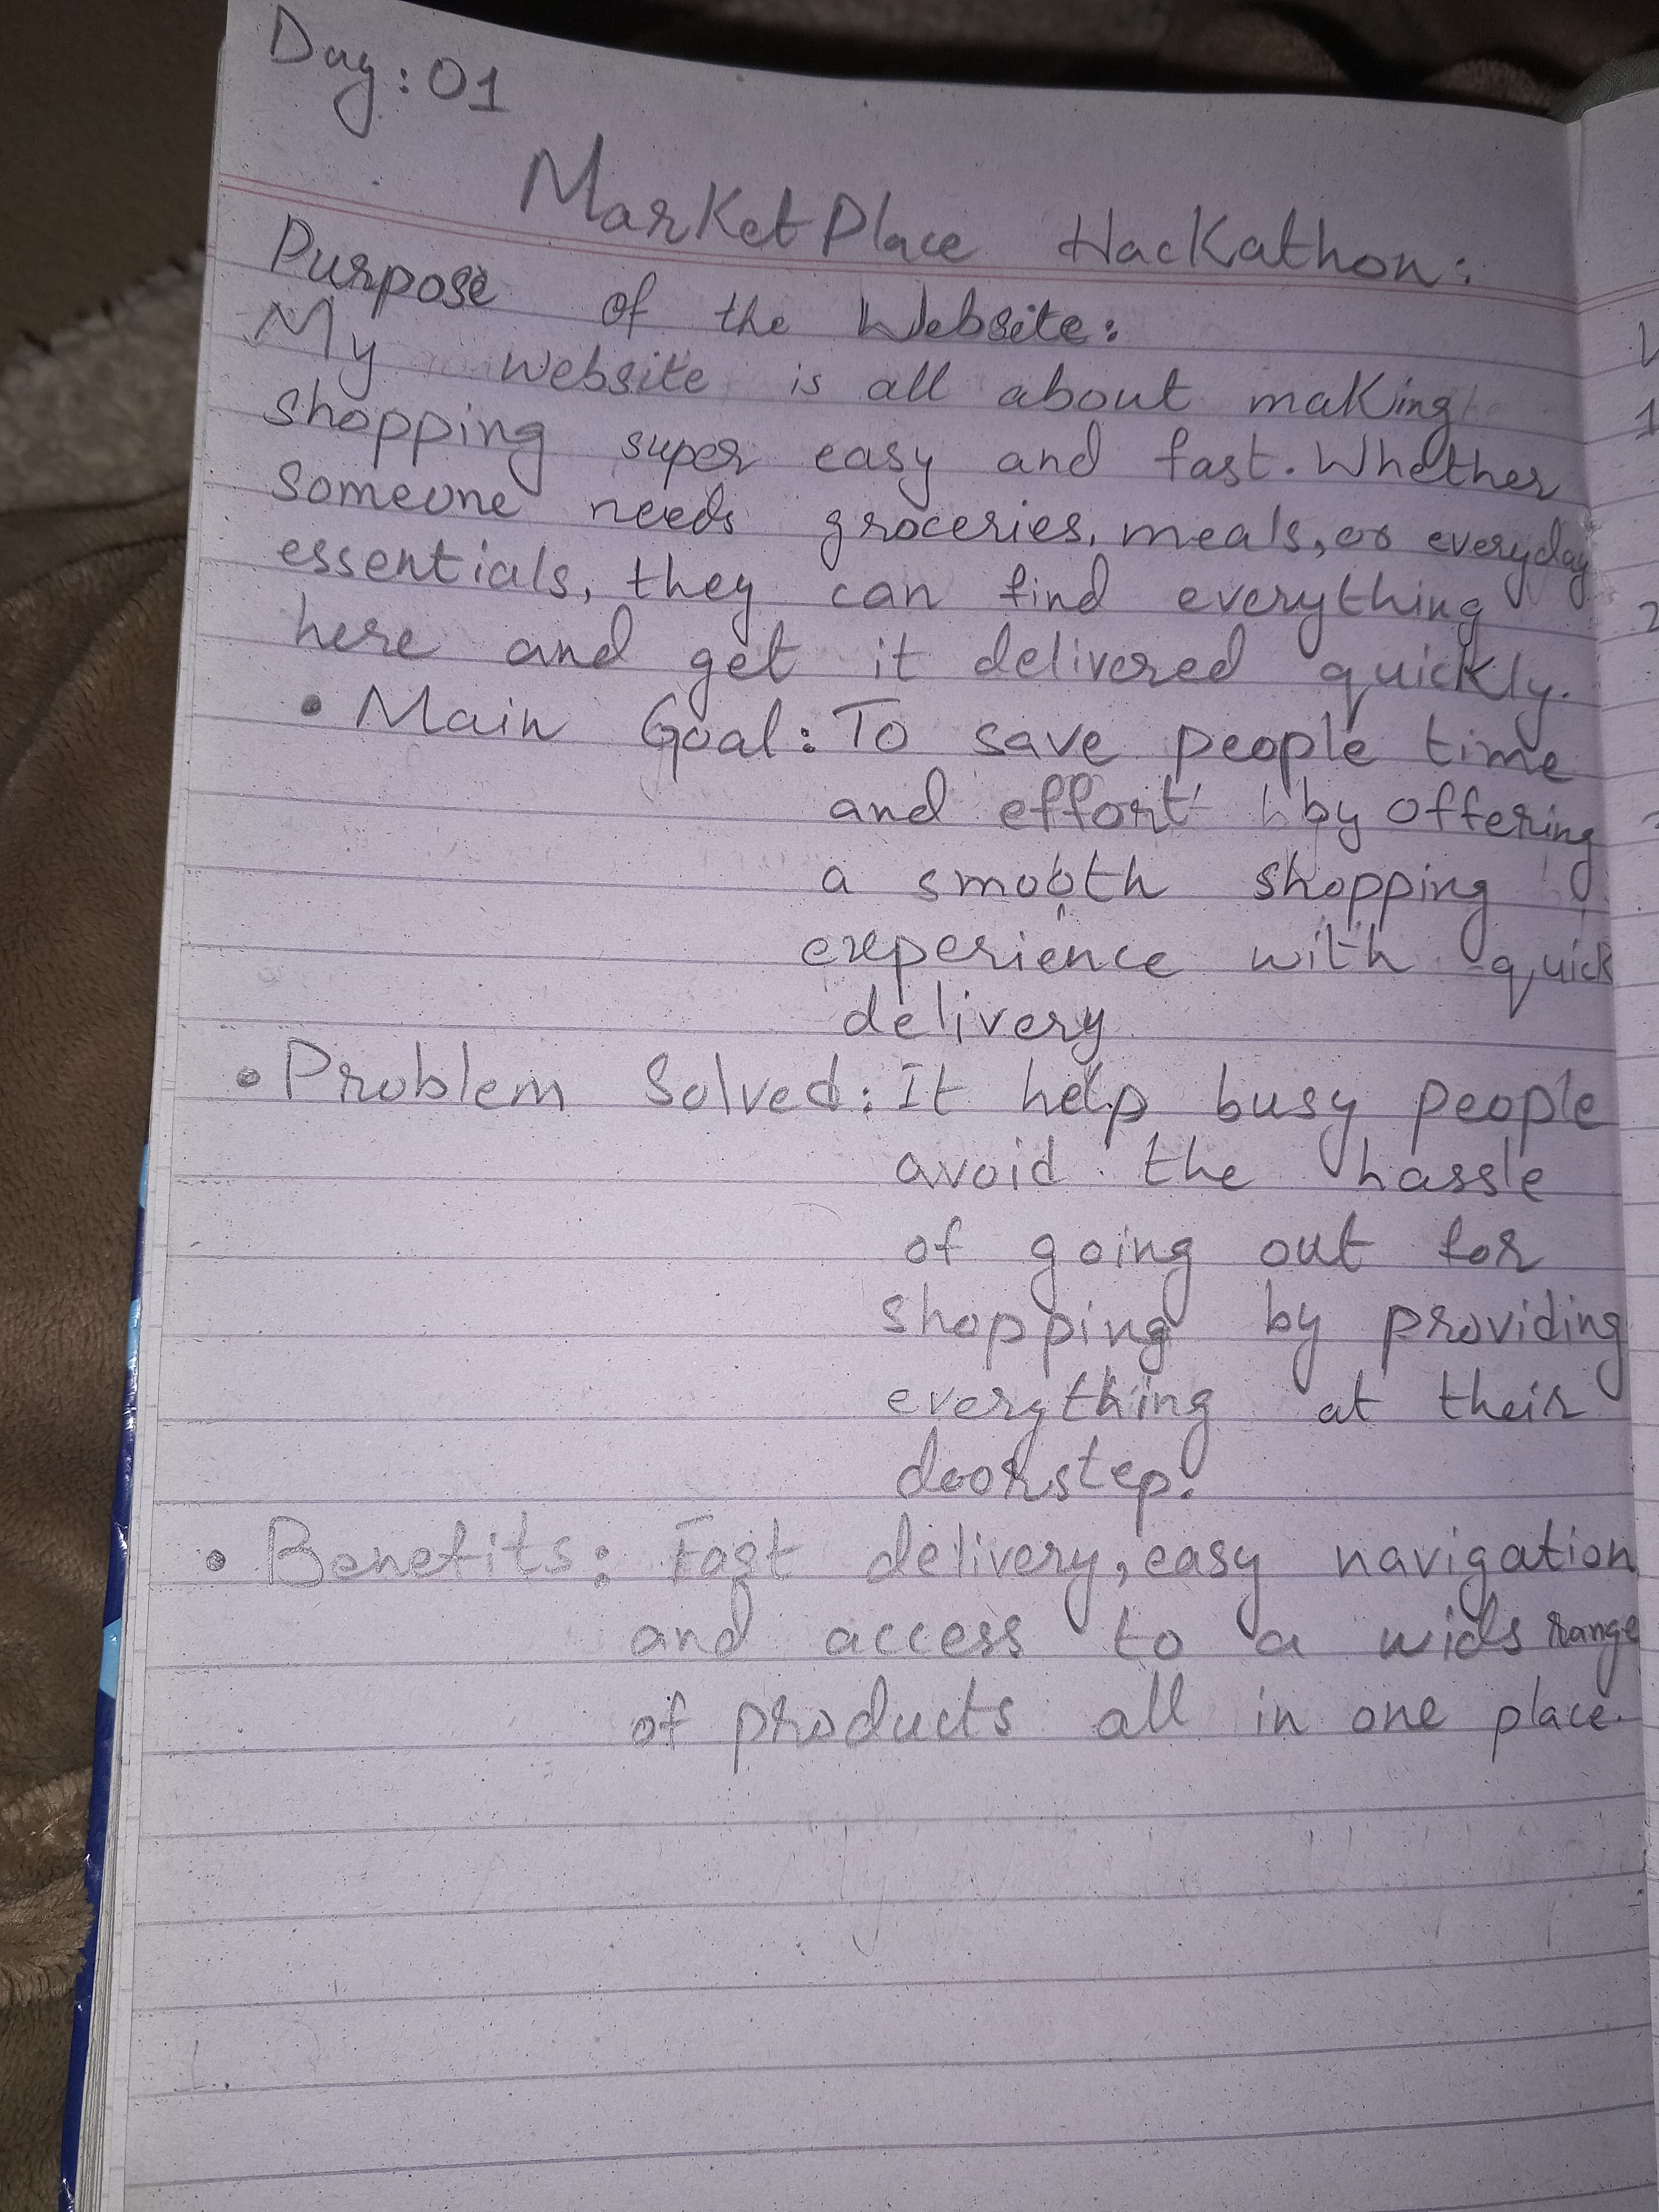 Day: 01
MarketPlace Hackathon:
Purpose of the Website:
My website is all about making
shopping super easy and fast. Whether
someone needs groceries, meals, or everyday
essentials, they can find everything
here and get it delivered quickly.
• Main Goal: To save people time
and effort by offering
a smooth shopping
experience with quick
delivery
• Problem Solved: It help busy people
avoid the hassle
of going out for
shopping by providing
everything at their
doorstep.
• Benefits: Fast delivery, easy navigation
and access to a wide range
of products all in one place.
1
2